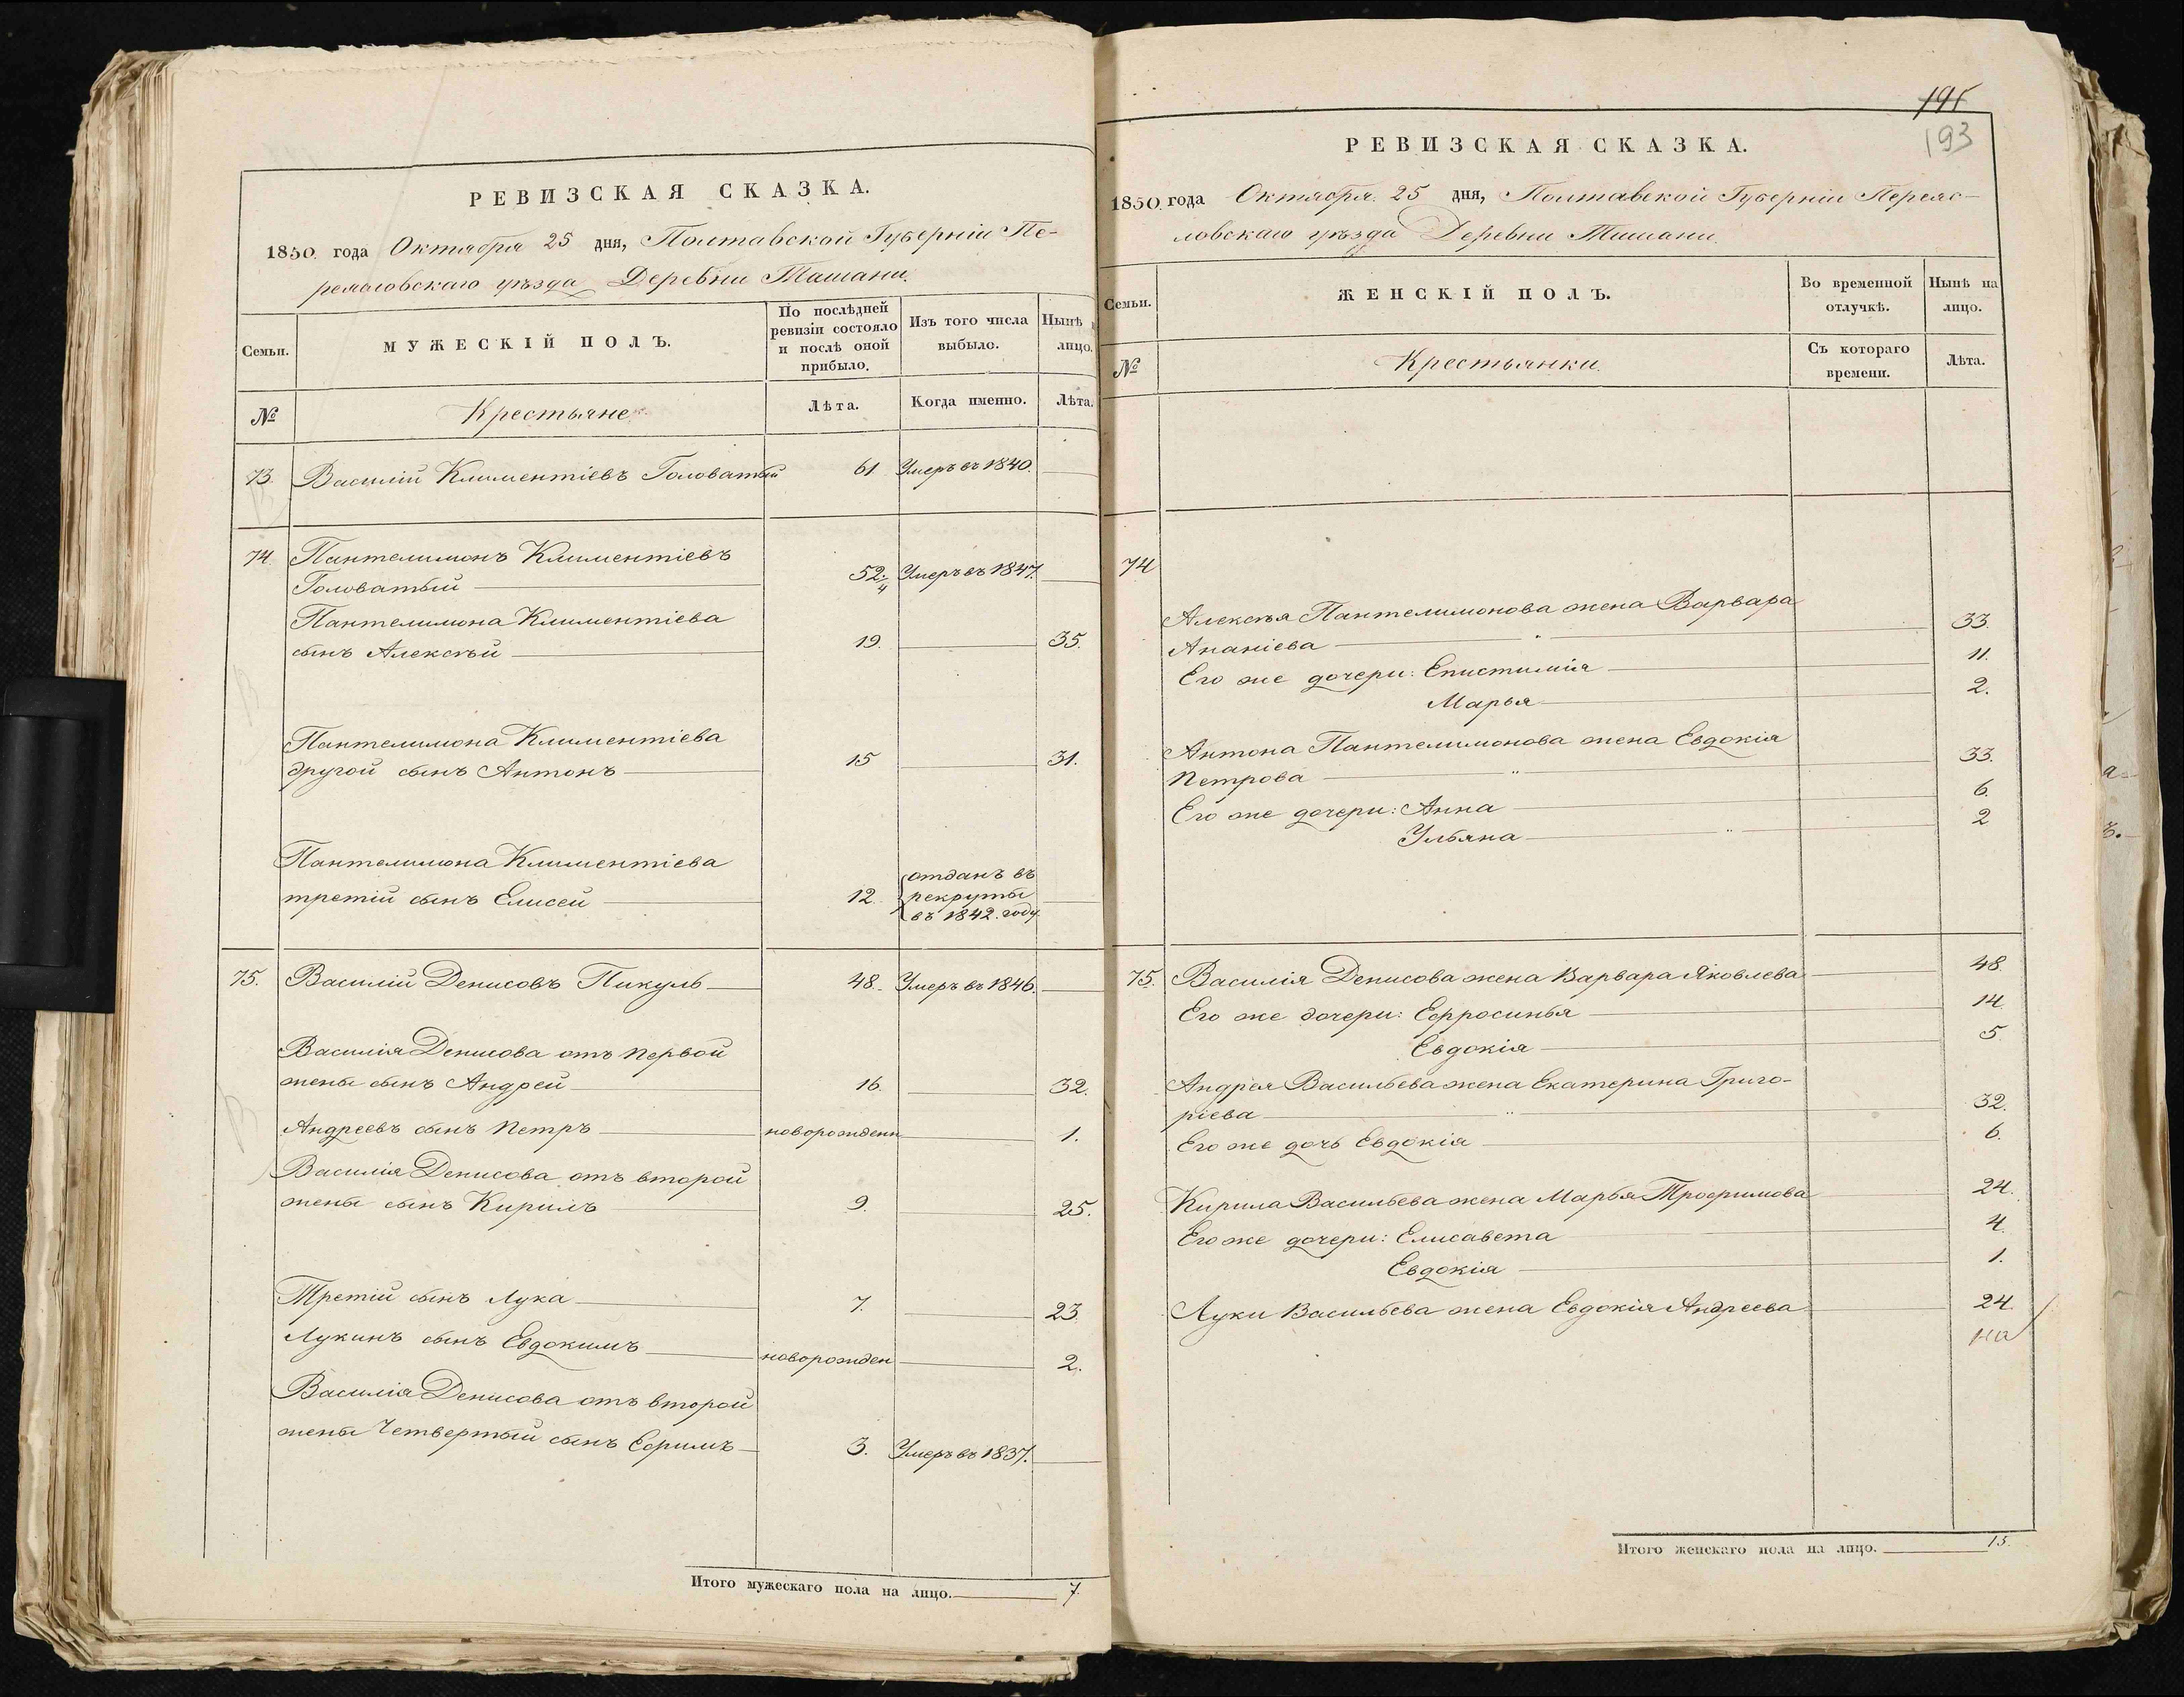 РЕВИЗСКАЯ СКАЗКА.
1850 года Октября 25 дня, Полтавской Губерніи Пе-
реяславскаго уѣзда Деревни Ташани.
Семьи.
МУЖЕСКІЙ ПОЛЪ.
По послѣдней ревизіи состояло и послѣ оной прибыло.
Изъ того числа выбыло.
Нынѣ
лицо.
№
Крестьяне
Лѣта.
Когда именно.
Лѣта.
73. Василій Климентіевъ Головатый 61 Умеръ въ 1840.
74. Пантелимонъ Климентіевъ
Головатый 52. 4 Умеръ въ 1847.
Пантелимона Климентіева
сынъ Алексѣй 19. 35.
Пантелимона Климентіева
другой сынъ Антонъ 15 31.
Пантелимона Климентіева
третій сынъ Елисей 12. отданъ въ
рекруты
въ 1842. году
75. Василій Денисовъ Пикуль 48. Умеръ въ 1846.
Василія Денисова отъ первой
жены сынъ Андрей 16. 32.
Андреевъ сынъ Петръ новорожденн 1.
Василія Денисова отъ второй
жены сынъ Кирилъ 9. 25.
Третій сынъ Лука 7. 23.
Лукинъ сынъ Евдокимъ новорожден 2.
Василія Денисова отъ второй
жены Четвертый сынъ Ефримъ 3. Умеръ въ 1837.
Итого мужескаго пола на лицо. 7.
193
РЕВИЗСКАЯ СКАЗКА.
1850. года Октября. 25 дня, Полтавской Губерніи Переяс-
ловскаго уѣзда Деревни Ташани.
Семьи.
ЖЕНСКІЙ ПОЛЪ.
Во временной отлучкѣ.
Нынѣ на лицо.
№
Крестьянки.
Съ котораго времени.
Лѣта.
74
Алексѣя Пантелимонова жена Варвара
Ананіева 33.
Его же дочери: Епистимія 11.
Марья 2.
Антона Пантелимонова жена Евдокія
Петрова 33.
Его же дочери: Анна 6.
Ульяна 2
75. Василія Денисова жена Варвара Яковлева 48.
Его же дочери: Ефросинья 14.
Евдокія 5
Андрея Васильева жена Екатерина Григо-
ріева 32.
Его же дочь Евдокія 6.
Кирила Васильева жена Марья Трофимова 24.
Его же дочери: Елисавета 4.
Евдокія 1.
Луки Васильева жена Евдокія Андреева 24.
Итого женскаго пола на лицо. 15.